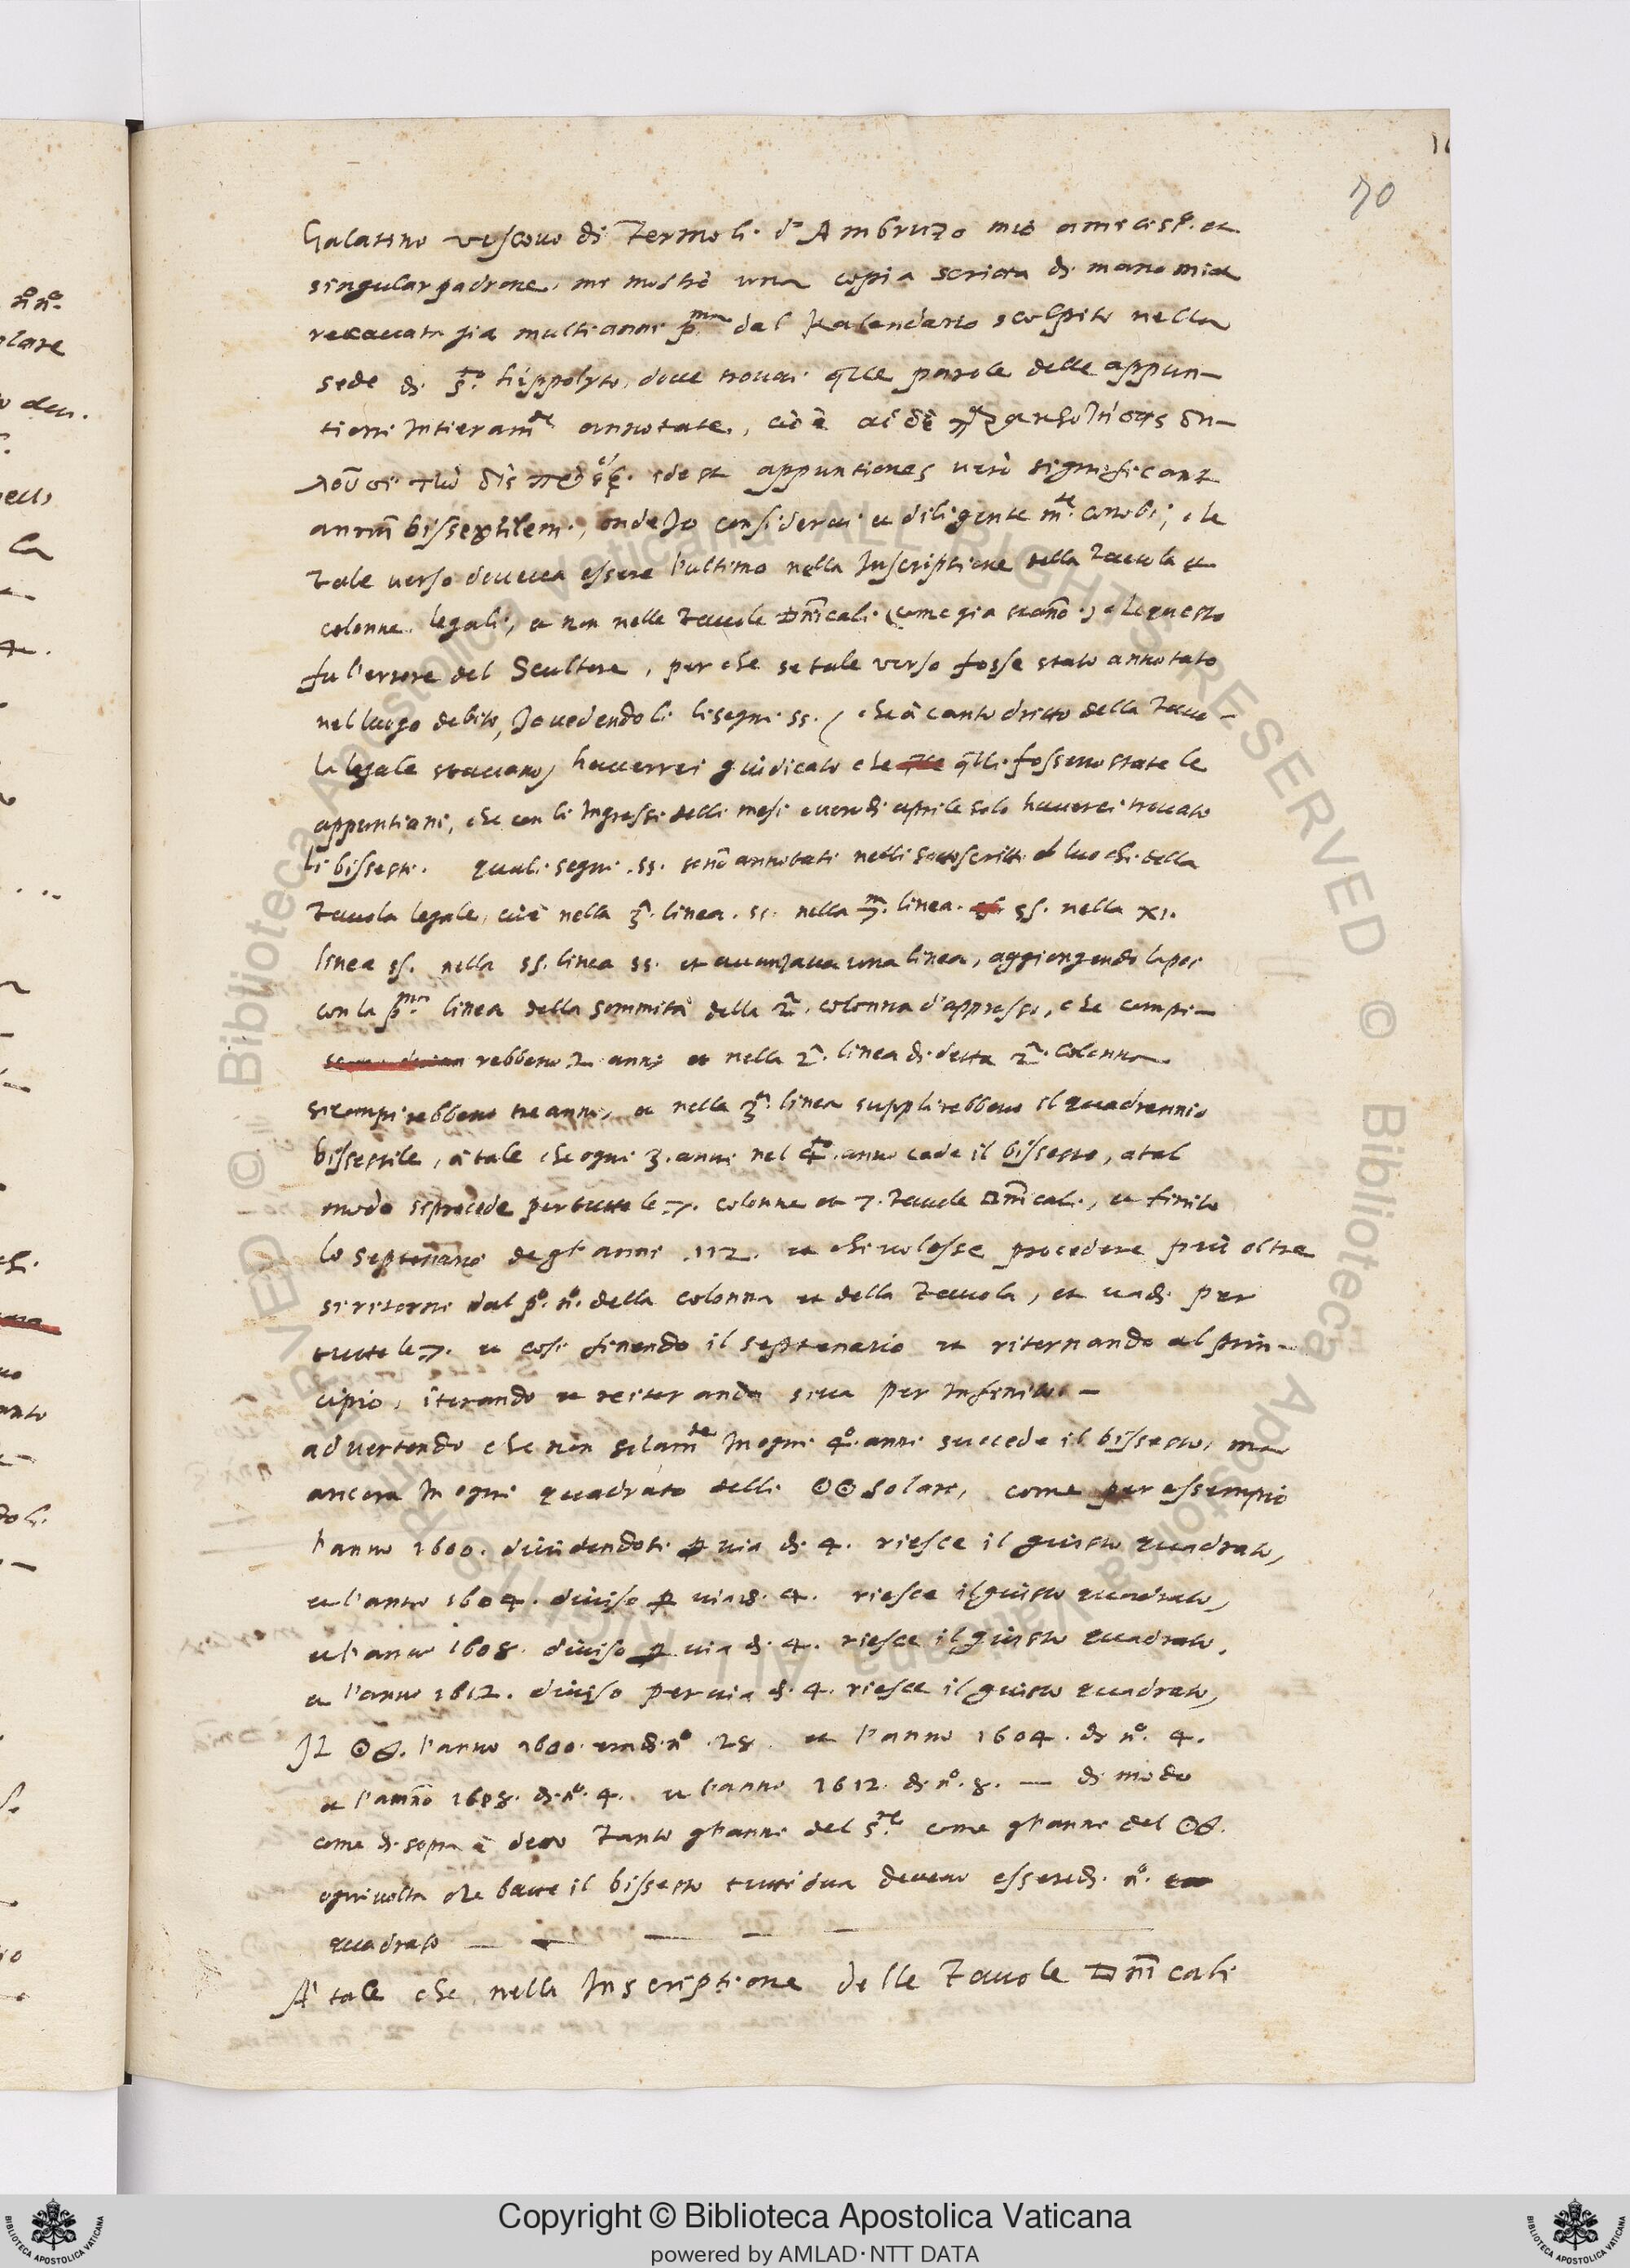 70
Galatino vescovo di Termoli d'Ambruzo mio amiciss.º et
singular padrone, mi mostrò una copia scritta di mano mia
recavata già multi anni p.ᵐᵃ dal Kalendario scolpito nella
sede di S.ᵗᵒ Hippolyto, dove trovai q̃lle parole delle appun-
tioni Intieram.ᵗᵉ annotate, cioè αἱ δὲ
idest appuntiones vero significant
annũ bissextilem, onde Io considerai et diligente m.ᵗᵉ conobi, che
tale verso doveva essere l'ultimo nella Inscriptione della Tavola et
colonne legali, et non nelle Tavole Dñicali (come già stanõ) che questo
fu l'errore del Scultore, per che se tale verso fosse stato annotato
nel luogo debito, Io vedendoli li segni ss. (che à canto dritto della Tavo-
la legale stavano) haverrei giudicato che q̃lli fosseno state le
appuntioni, che con li Ingressi delli mesi overo di aprile solo haverei trovato
li bissesti. quali segni .ss. sonõ annotati nelli sottoscritti luochi della
Tavola legale, cioè nella 3.ª linea .ss. nella 7.ᵐᵃ linea. ss. nella XI.
linea ss. nella 15. linea ss. et avanzava una linea, aggiongendola poi
con la p.ᵐᵃ linea della sommità della 2.ª colonna d'appresso, che compi-
rebbeno 2 anni et nella 2.ª linea di detta 2.ª Colonna
si compirebbeno tre anni, et nella 3.ª linea supplirebbeno il quadrennio
bissestile, à tale che ogni 3. anni nel 4.ᵗᵒ anno cade il bissesto, a tal
modo si procede per tutte le 7. colonne et 7. Tavole Dñicali, et finito
lo septenario de gl'anni .112. et chi volesse procedere più oltre
si ritorni dal p.º n.º della colonna et della Tavola, et vadi per
tutte le 7. et così finendo il septenario et ritornando al prin-
cipio, iterando et reiterando si va per Infinito. -
advertendo che non solam.ᵗᵉ In ogni 4.º anni succede il bissesto, ma
ancora In ogni quadrato delli ʘʘ solari, come per essempio
l'anno 1600. dividendoli p via di 4. riesce il giusto quadrato,
et l'anno 1604. diviso p via di 4. riesce il giusto quadrato,
et l'anno 1608. diviso p via di 4. riesce il giusto quadrato,
et l'anno 1612. diviso per via di 4. riesce il giusto quadrato,
l'anno 1600. n.º .28. et l'anno 1604. di n.º 4.
et l'annõ 1608. di n.º 4. et l'anno 1612. di n.º 8. — di modo
come di sopra è detto Tanto gl'anni del come gl'anni del
ogni volta che batte il bissesto tutti dua deveno essere di n.º
quadrato — — — — —
A tale che nella Inscriptione delle Tavole Dñicali
© Biblioteca Apostolica Vaticana ALL RIGHTS RESERVED © Biblioteca Apostolica Vaticana ALL RIGHTS RESERVED
Copyright © Biblioteca Apostolica Vaticana
powered by AMLAD·NTT DATA